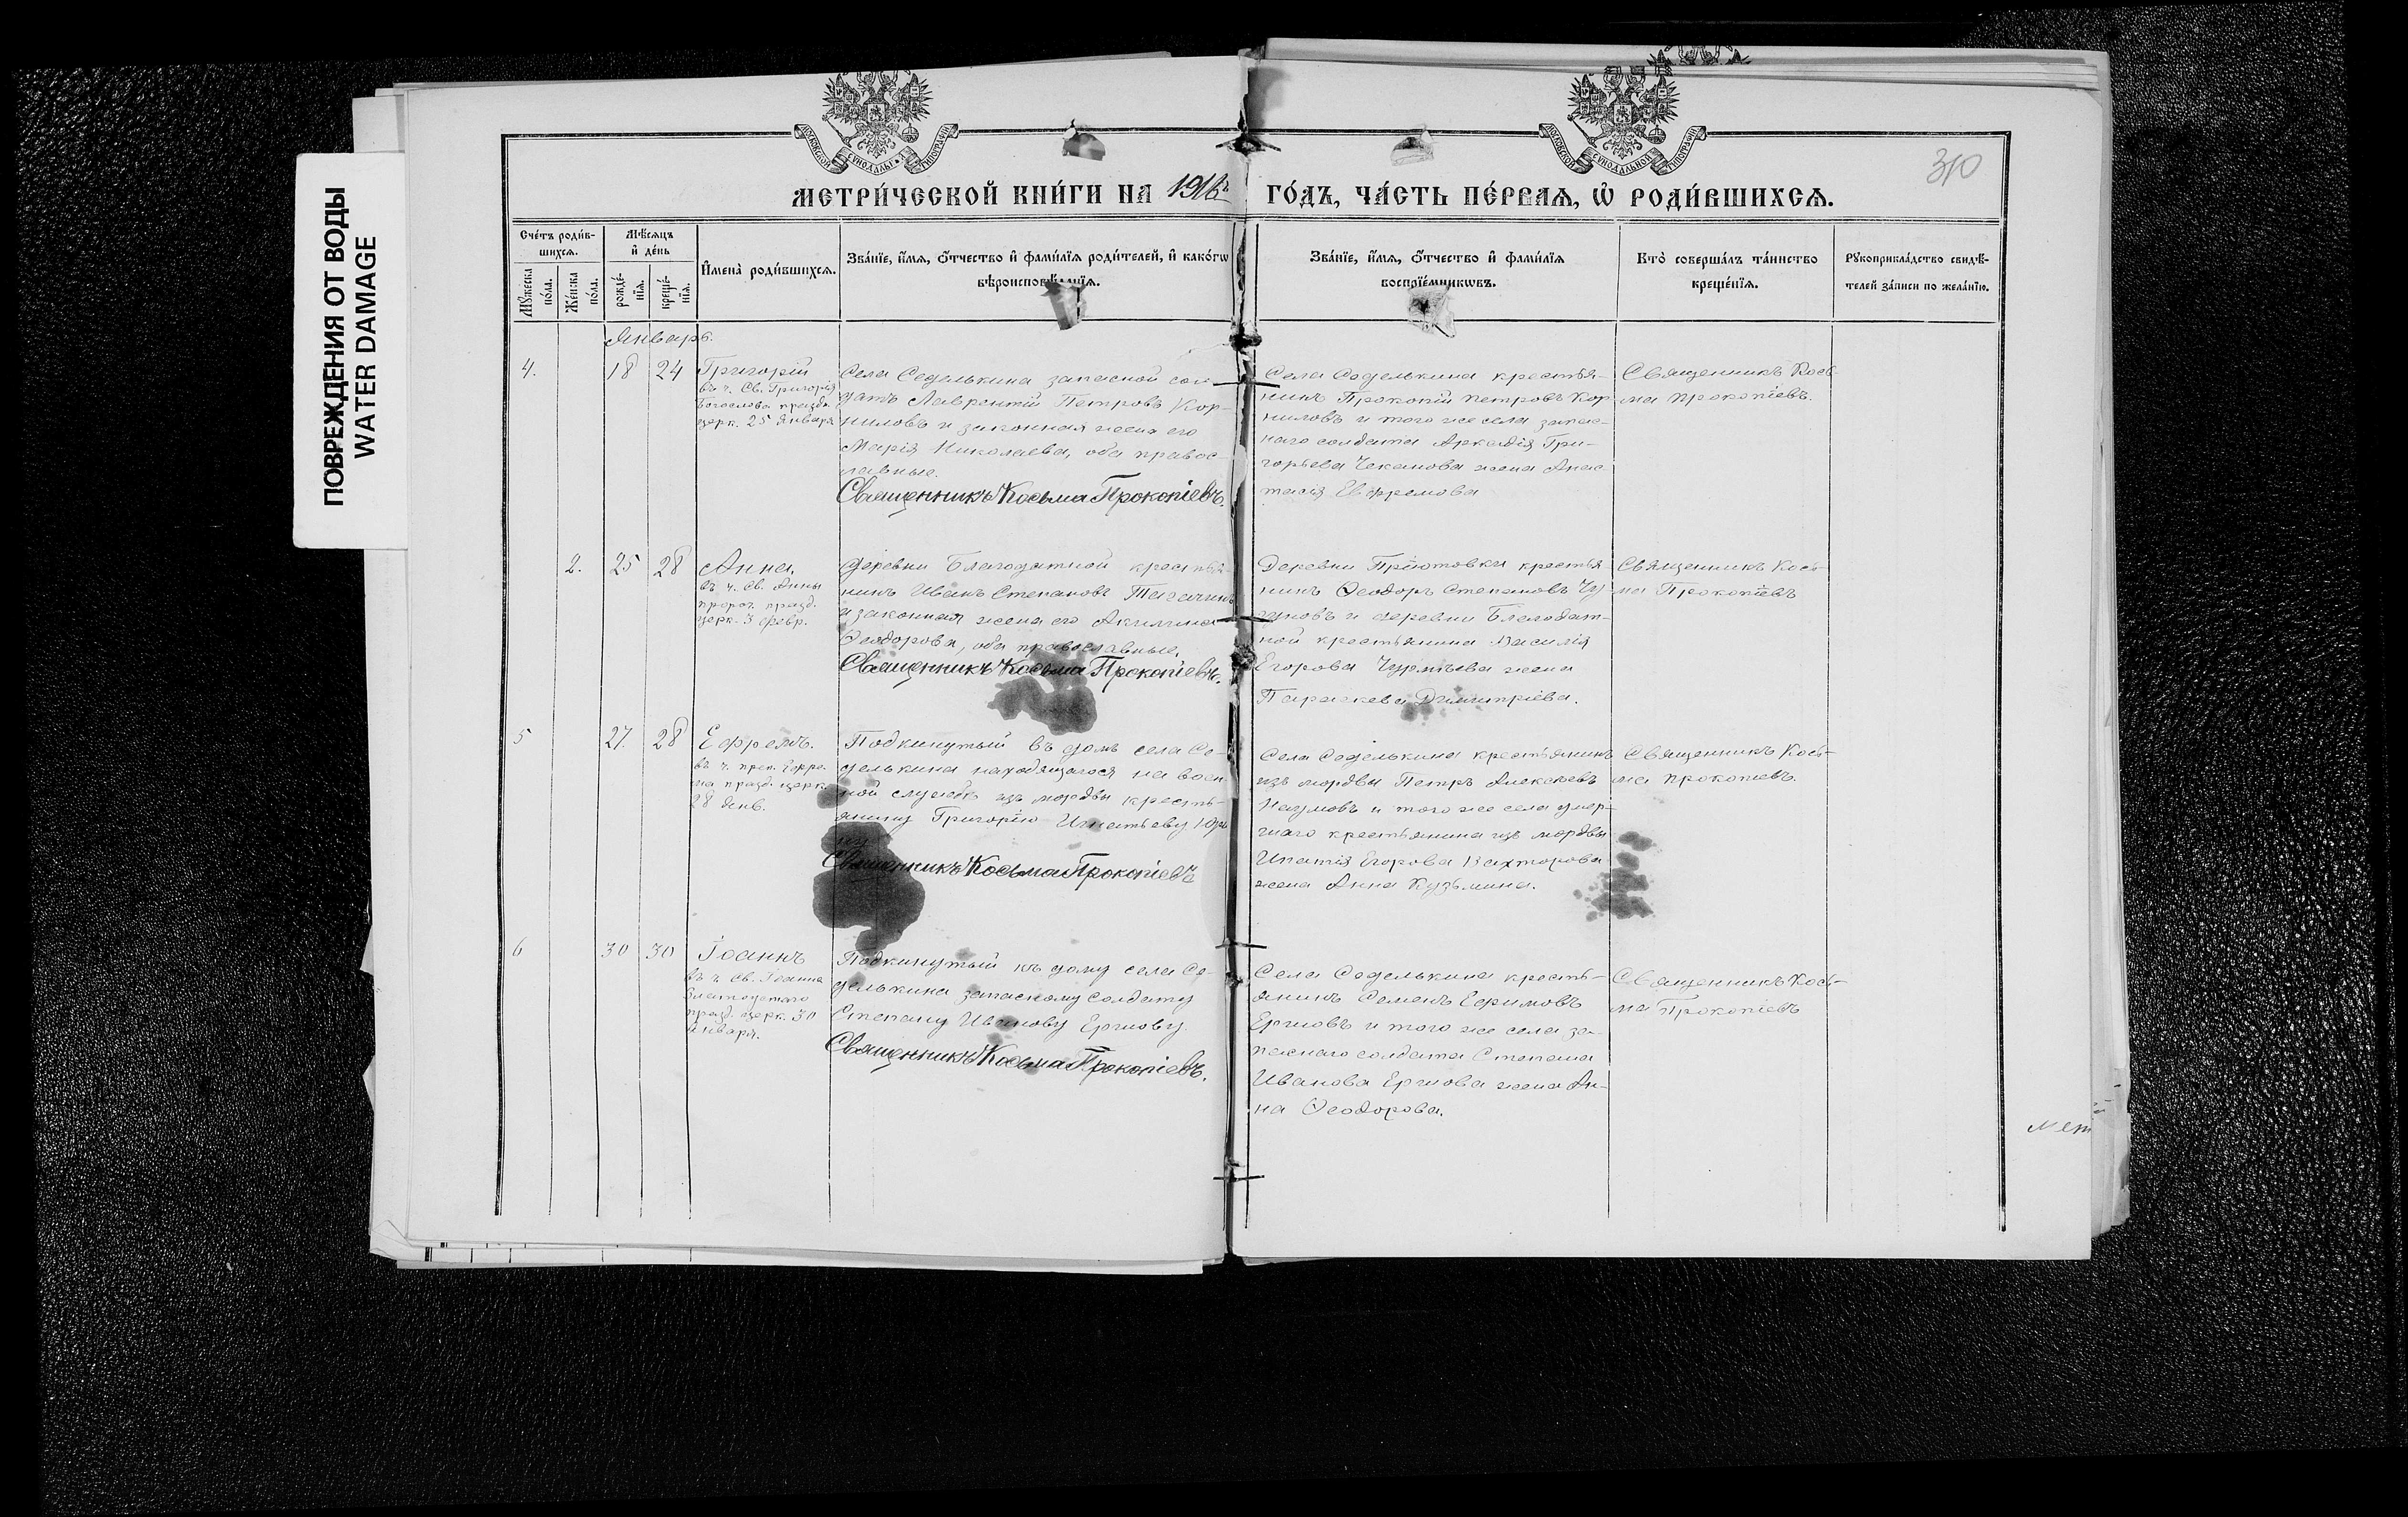 ПОВРЕЖДЕНИЯ ОТ ВОДЫ
WATER DAMAGE
МОСКОВСКОЙ СУНОДАЛЬНОЙ ТИПОГРАФІИ
МОСКОВСКОЙ СУНОДАЛЬНОЙ ТИПОГРАФІИ
310
МЕТРИ́ЧЕСКОЙ КНИ́ГИ НА 1916й ГО́ДЪ, ЧА́СТЬ ПЕ́РВАЯ, Ѡ РОДИ́ВШИХСЯ.
Сче́тъ роди́в-
шихся.
Мꙋ́жеска
по́ла.
Же́нска
по́ла.
Мѣ́сяцъ
и҆ де́нь
рожде́-
нїя.
креще́-
нїя.
И҆мена̀ роди́вшихся.
Зва́нїе, и҆́мя, ѻ҆́тчество и҆ фами́лїя роди́телей, и҆ како́гѡ
вѣроисповѣ́данїя.
Зва́нїе, и҆́мя, ѻ҆́тчество и҆ фами́лїя
воспрїе́мникѡвъ.
Кто̀ соверша́лъ та́инство
креще́нїя.
Рꙋкоприкла́дство свидѣ́-
телей за́писи по жела́нїю.
Январь.
4.
18
24
Григорій
въ ч. Св. Григорія
Богослова празд.
церк. 25 Января
Села Седелькина запасной сол-
датъ Лаврентій Петровъ Кор-
ниловъ и законная жена его
Марія Николаева, оба правос-
лавные.
Священникъ Косьма Прокопіевъ.
Села Седелькина крестья-
нинъ Прокопій Петровъ Кор-
ниловъ и того же села запас-
наго солдата Аркадія Гри-
горьева Чеканова жена Анас-
тасія Евфремова
Священникъ Кось-
ма Прокопіевъ.
2.
25
28
Анна.
въ ч. Св. Анны
пророч. празд.
церк. 3 февр.
Деревни Благодатной крестья-
нинъ Иванъ Степановъ
и законная жена его Акилина
Ѳеодорова, оба православные.
Священникъ Косьма Прокопіевъ.
Деревни Пріютовки крестья-
нинъ Ѳеодоръ Степановъ Чу-
гуновъ и деревни Благодат-
ной крестьянина Василія
Егорова жена
Параскева Димитріева.
Священникъ Кось-
ма Прокопіевъ
5
27.
28
Ефремъ.
въ ч. преп. Ефре-
ма празд. церк.
28 Янв.
Подкинутый въ домъ села Се-
делькина находящагося на воен-
ной службѣ изъ мордвы кресть-
янину Григорію Игнатьеву
Священникъ Косьма Прокопіевъ
Села Седелькина крестьянинъ
изъ мордвы Петръ Алексѣевъ
Наумовъ и того же села умер-
шаго крестьянина изъ мордвы
Ипатія Егорова Вахторова
жена Анна Кузьмина.
Священникъ Кось-
ма Прокопіевъ.
6
30
30
Іоаннъ
въ ч. Св. Іоанна
Златоустаго
празд. церк. 30
Января.
Подкинутый къ дому села Се-
делькина запасному солдату
Степану Иванову Ершову.
Священникъ Косьма Прокопіевъ.
Села Седелькина кресть-
янинъ Семенъ Ефимовъ
Ершовъ и того же села за-
паснаго солдата Степана
Иванова Ершова жена Ан-
на Ѳеодорова.
Священникъ Кось-
ма Прокопіевъ